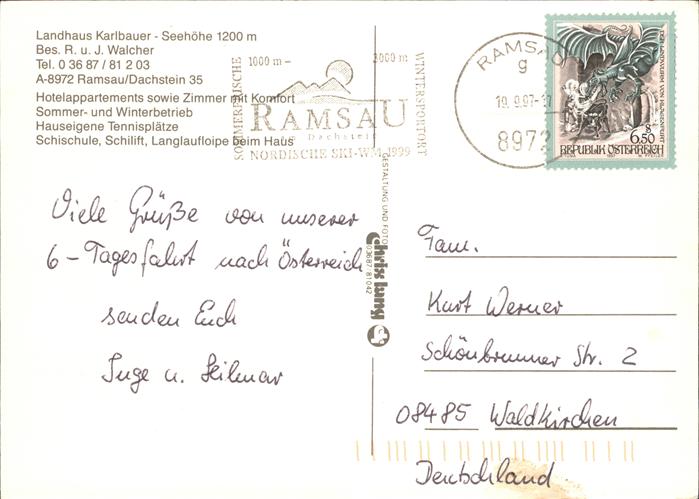 Landhaus Karlbauer - Seehöhe 1200 m
Bes. R. u. J. Walcher
Tel. 0 36 87 / 81 2 03
A-8972 Ramsau/Dachstein 35
Hotelappartements sowie Zimmer mit Komfort
Sommer- und Winterbetrieb
Hauseigene Tennisplätze
Schischule, Schilift, Langlaufloipe beim Haus
SOMMERFRISCHE
1000 m -
3000 m
RAMSAU
Dachstein
NORDISCHE SKI-WM 1999
WINTERSPORTORT
RAMSAU
g
19.9.97
8972
DER LINDWURM VON KLAGENFURT
S
6.50
REPUBLIK ÖSTERREICH
1997
Viele Grüße von unserer
6-Tagesfahrt nach Österreich
senden Euch
Inge u.
GESTALTUNG UND FOTO
03687 81042
Fam.
Kurt Werner
Schönbrunner Str. 2
08485 Waldkirchen
Deutschland